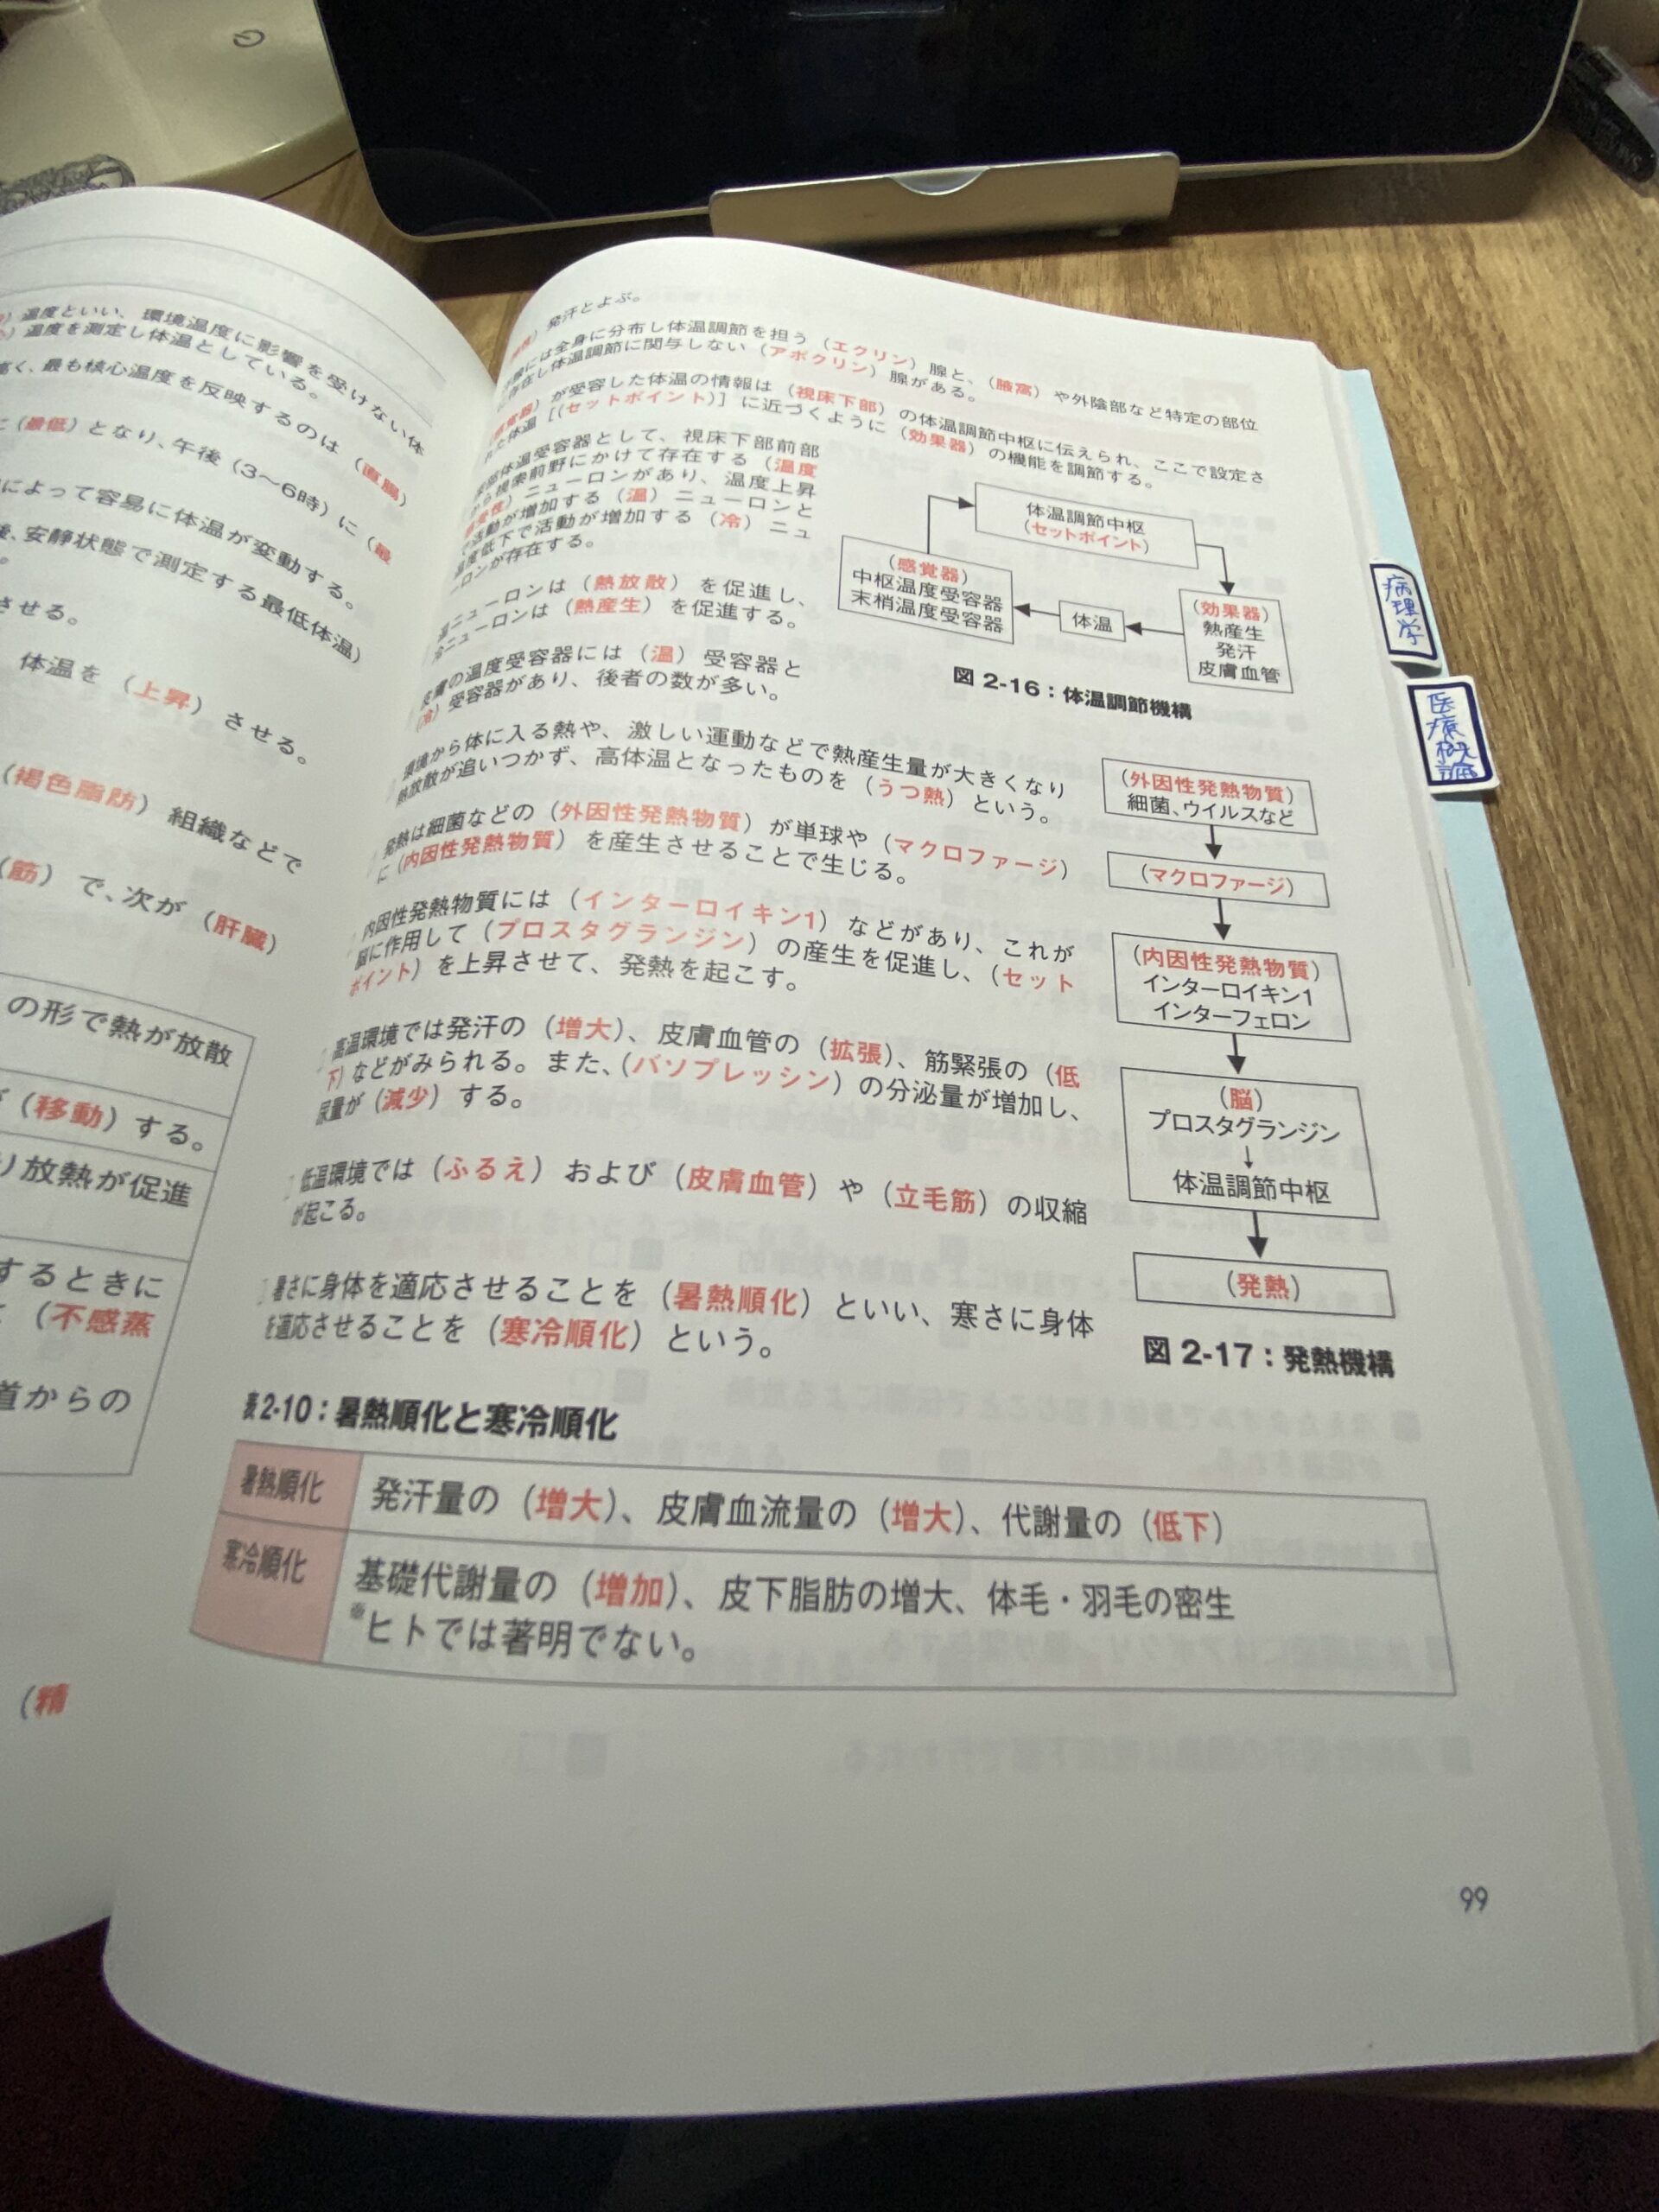 温度といい、環境温度に影響を受けない体
温度を測定し体温としている。
高く、最も核心温度を反映するのは（直腸）
に（最低）となり、午後（3〜6時）に（最
によって容易に体温が変動する。
後、安静状態で測定する最低体温）
させる。
体温を（上昇）させる。
（褐色脂肪）組織などで
（筋）で、次が（肝臓）
の形で熱が放散
が（移動）する。
り放熱が促進
するときに
（不感蒸
道からの
（精
発汗とよぶ。
には全身に分布し体温調節を担う（エクリン）腺と、（腋窩）や外陰部など特定の部位
に存在し体温調節に関与しない（アポクリン）腺がある。
（感覚器）が受容した体温の情報は（視床下部）の体温調節中枢に伝えられ、ここで設定さ
れた体温［（セットポイント）］に近づくように（効果器）の機能を調節する。
体温受容器として、視床下部前部
から視索前野にかけて存在する（温度
感受性）ニューロンがあり、温度上昇
で活動が増加する（温）ニューロンと
温度低下で活動が増加する（冷）ニュ
ーロンが存在する。
温ニューロンは（熱放散）を促進し、
冷ニューロンは（熱産生）を促進する。
皮膚の温度受容器には（温）受容器と
（冷）受容器があり、後者の数が多い。
体温調節中枢
（セットポイント）
（感覚器）
中枢温度受容器
末梢温度受容器
体温
（効果器）
熱産生
発汗
皮膚血管
図 2-16：体温調節機構
環境から体に入る熱や、激しい運動などで熱産生量が大きくなり
熱放散が追いつかず、高体温となったものを（うつ熱）という。
発熱は細菌などの（外因性発熱物質）が単球や（マクロファージ）
に（内因性発熱物質）を産生させることで生じる。
内因性発熱物質には（インターロイキン1）などがあり、これが
脳に作用して（プロスタグランジン）の産生を促進し、（セット
ポイント）を上昇させて、発熱を起こす。
高温環境では発汗の（増大）、皮膚血管の（拡張）、筋緊張の（低
下）などがみられる。また、（バソプレッシン）の分泌量が増加し、
尿量が（減少）する。
低温環境では（ふるえ）および（皮膚血管）や（立毛筋）の収縮
が起こる。
暑さに身体を適応させることを（暑熱順化）といい、寒さに身体
を適応させることを（寒冷順化）という。
（外因性発熱物質）
細菌、ウイルスなど
（マクロファージ）
（内因性発熱物質）
インターロイキン1
インターフェロン
（脳）
プロスタグランジン
↓
体温調節中枢
（発熱）
図 2-17：発熱機構
表2-10：暑熱順化と寒冷順化
暑熱順化
発汗量の（増大）、皮膚血流量の（増大）、代謝量の（低下）
寒冷順化
基礎代謝量の（増加）、皮下脂肪の増大、体毛・羽毛の密生
※ヒトでは著明でない。
99
病理学
医療概論